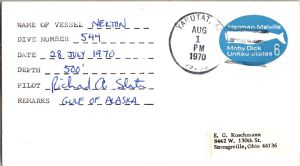 NAME OF VESSEL NEKTON
DIVE NUMBER 544
DATE 28 JULY 1970
DEPTH 500'
PILOT Richard A. Slater
REMARKS GULF OF ALASKA
YAKUTAT,
AUG
1
PM
1970
Herman Melville
Moby Dick
United States
6
E. G. Koschmann
8442 W. 130th St.
Strongsville, Ohio 44136